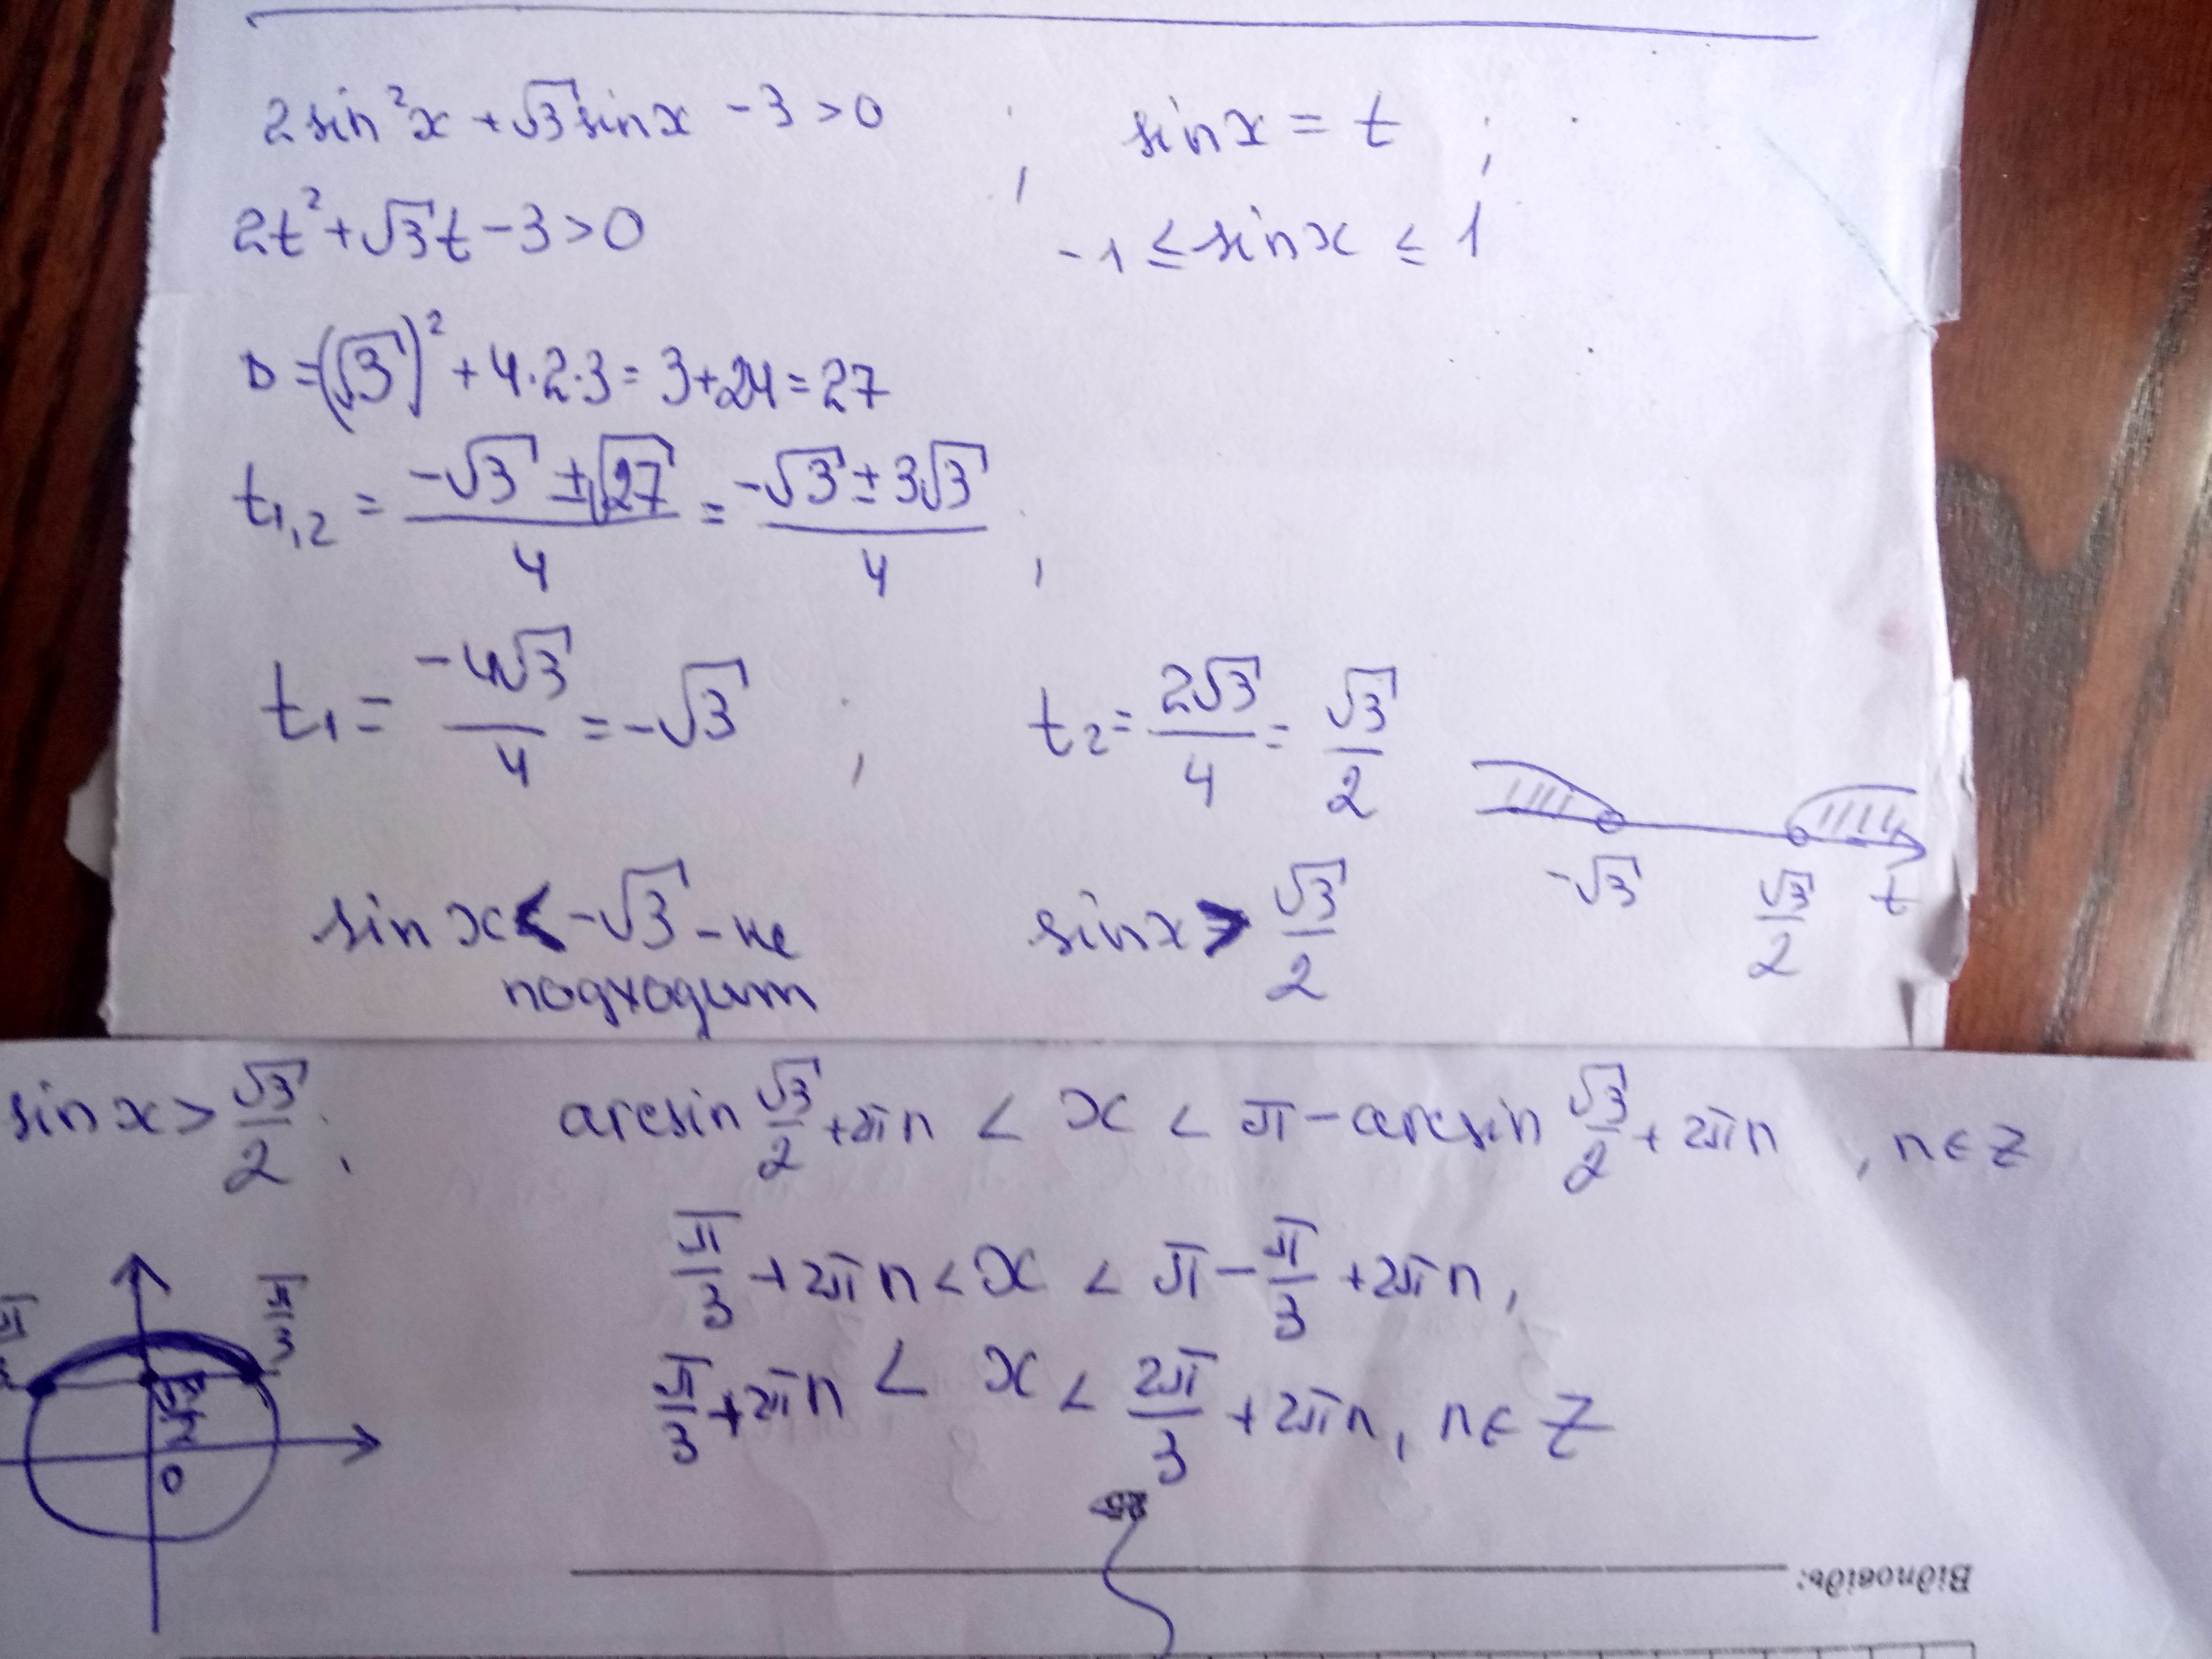 2sin²x + √3 sinx - 3 > 0 ; sinx = t ;
2t² + √3t - 3 > 0 , -1 ≤ sinx ≤ 1
D = (√3)² + 4·2·3 = 3+24 = 27
t₁,₂ = (-√3 ± √27)/4 = (-√3 ± 3√3)/4 ;
t₁ = -4√3/4 = -√3 ; t₂ = 2√3/4 = √3/2
-√3 √3/2 t
sinx < -√3 - не sinx > √3/2
подходит
sinx > √3/2 ; arcsin √3/2 + 2πn < x < π - arcsin √3/2 + 2πn , n ∈ Z
π/3 + 2πn < x < π - π/3 + 2πn ,
π/3 + 2πn < x < 2π/3 + 2πn , n ∈ Z
π/3
√3/2
0
Відповідь: